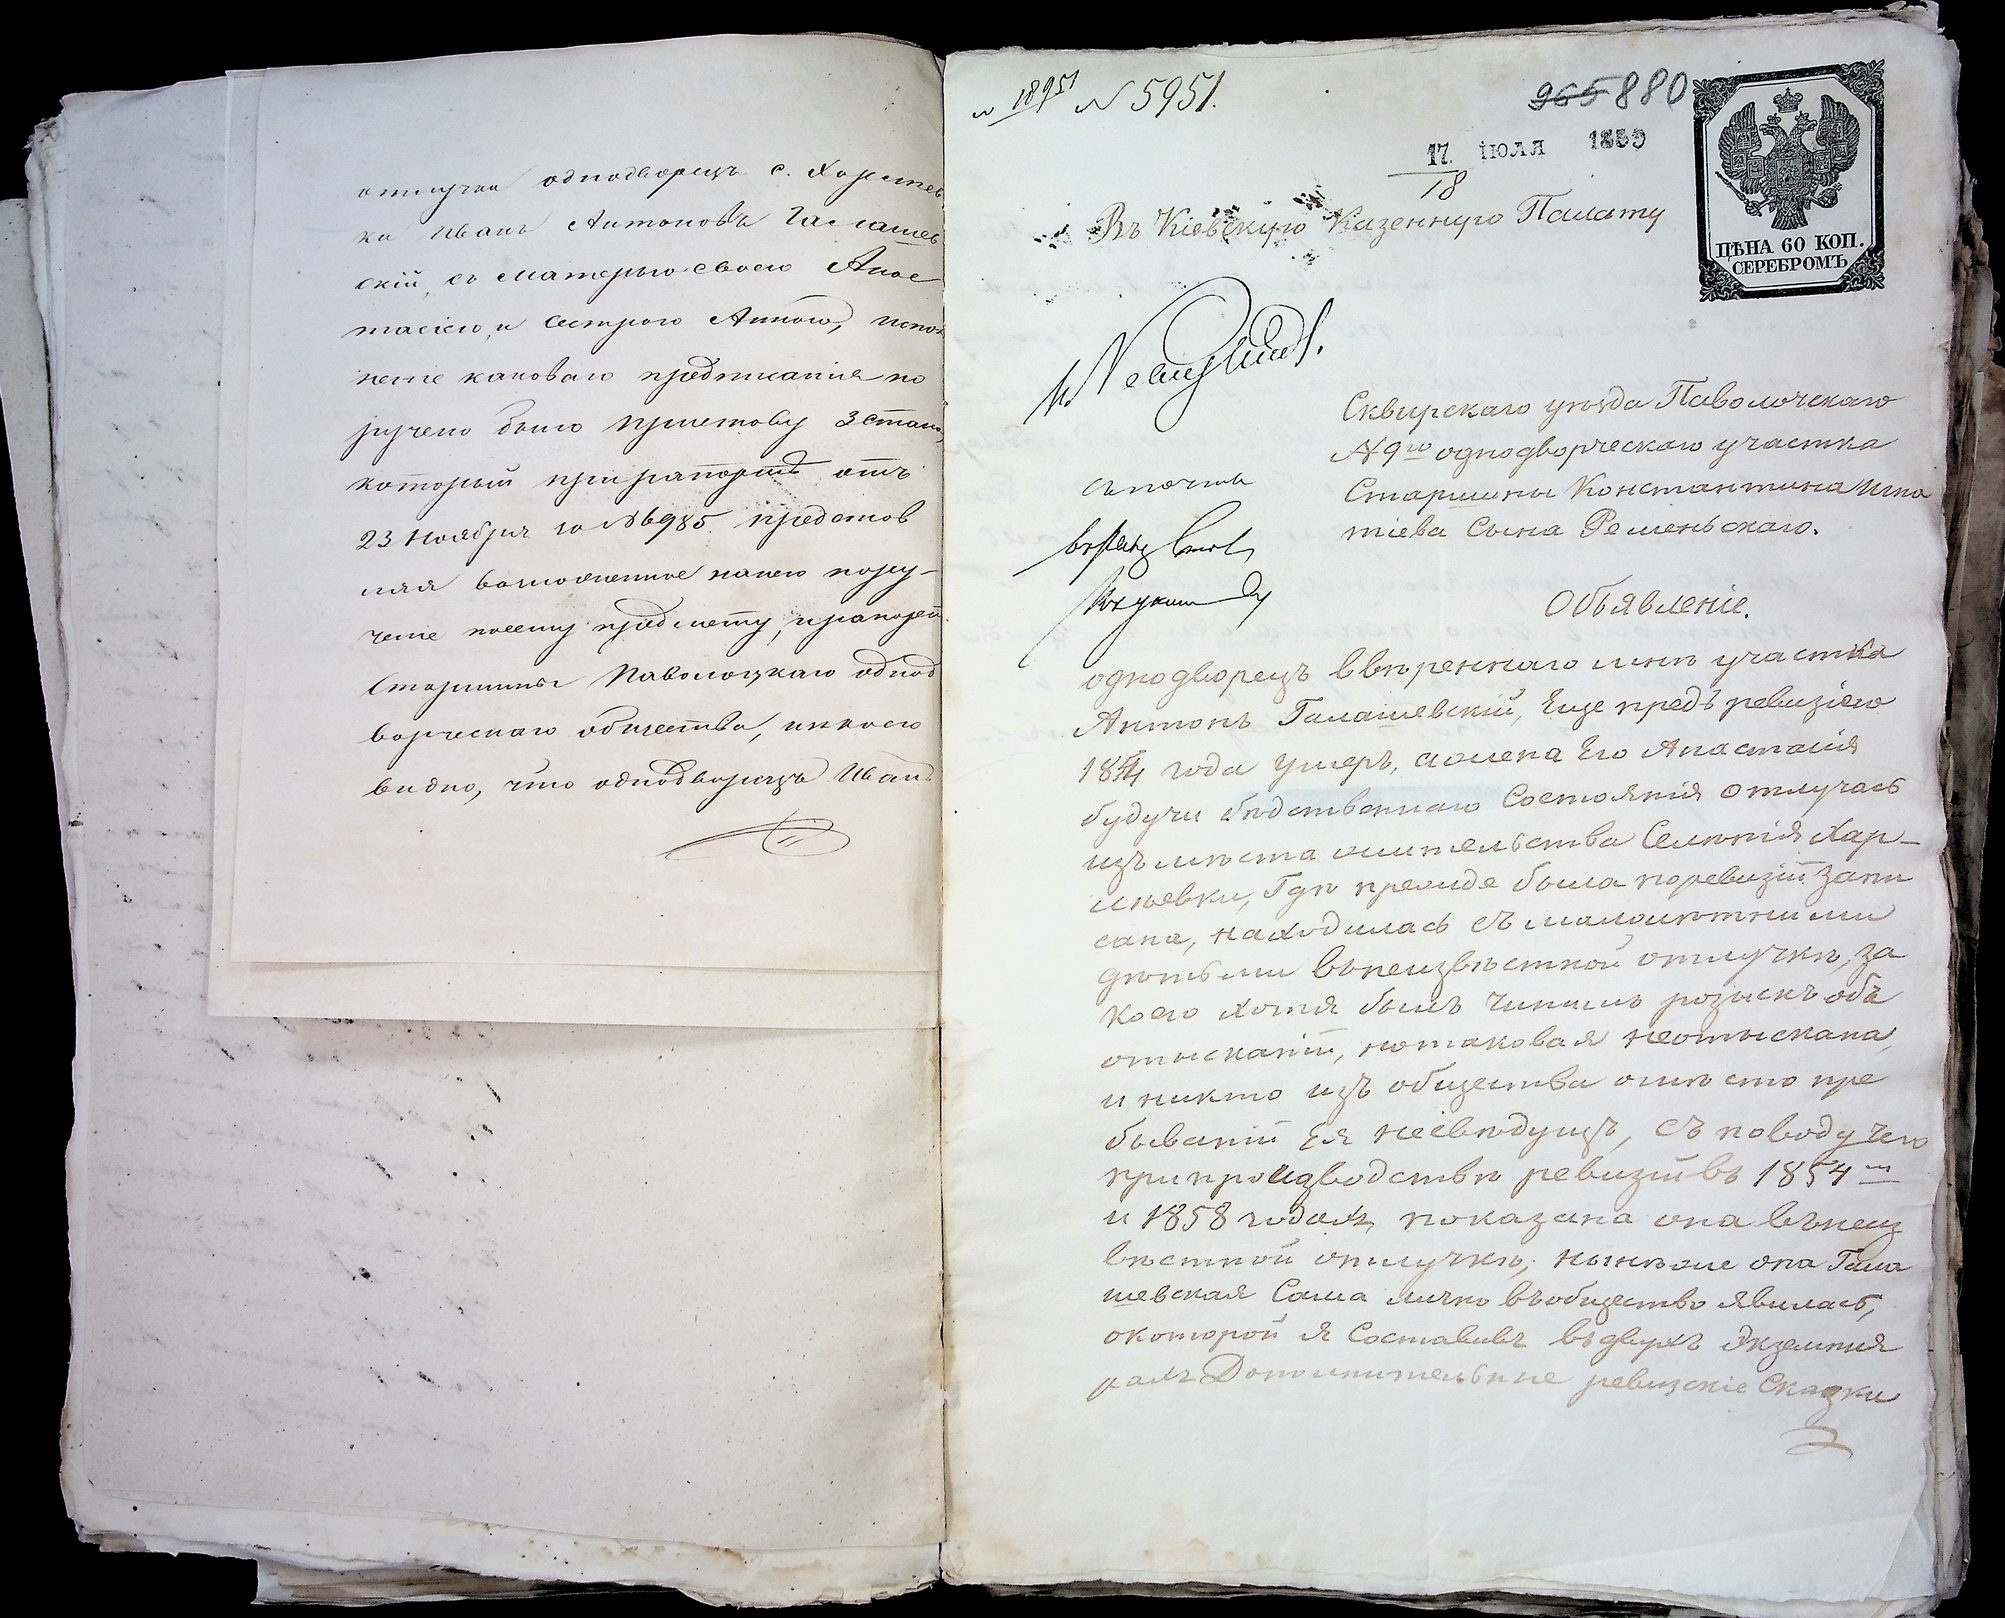 отлучки однодворецъ с. Харлеев
ки Иванъ Антоновъ Галашев
скій, съ матерью своею Анас
тасіею, и сестрою Анною, испол
неніе каковаго предписанія по
ручено было приставу 3 стана,
который при рапортѣ отъ
23 Ноября за № 6985 представ
ляя возложенное на него пору-
ченіе по сему предмету, и рапортъ
Старшины Паволоцкаго однод
ворческаго общества, из коего
видно, что однодворецъ Иванъ
18951 № 5951.
965 880
17 ІЮЛЯ 1859
18
ЦѢНА 60 КОП.
СЕРЕБРОМЪ
Въ Кіевскую Казенную Палату
Сквирскаго уѣзда Паволочскаго
№ 9го однодворческаго участка
Старшины Константина Игна
тіева Сына Ременьскаго.
съ почты
Объявленіе.
однодворецъ ввѣреннаго мнѣ участка
Антонъ Галашевскій, Еще предъ ревизіею
1854 года умеръ, а жена Его Анастасія
будучи бѣдственнаго Состоянія отлучась
изъ мѣста жительства Селенія Хар-
лѣевки, Гдѣ прежде была по ревизіи запи
сана, находилась съ малолѣтними
дѣтьми въ неизвѣстной отлучкѣ, за
коею хотя былъ чинимъ розыскъ объ
отысканіи, но таковая неотыскана,
и никто изъ общества о мѣсто пре
бываніи Ея несвѣдущъ, съ поводу чего
при производствѣ ревизіи въ 1854 м
и 1858 годахъ, показана она въ неиз
вѣстной отлучкѣ, нынѣ же она Гала
шевская Сама лично въ общество явилась,
о которой я Составивъ въ двухъ Экземпля
рахъ Дополнительные ревизскіе Сказки